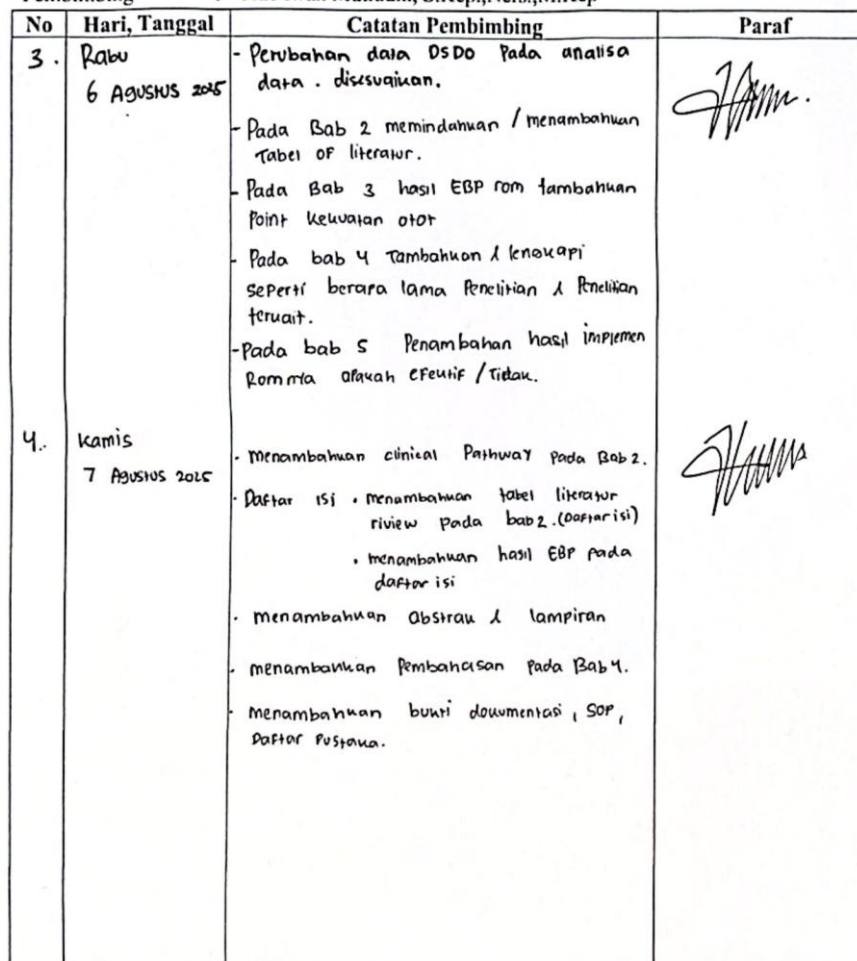 No Hari, Tanggal Catatan Pembimbing Paraf
3. Rabu
6 Agustus 2025
- Perubahan data DSDO pada analisa
data. disesuaikan.
- Pada Bab 2 memindahkan / menambahkan
Tabel OF literatur.
- Pada Bab 3 hasil EBP rom tambahkan
Point kekuatan otot
- Pada bab 4 Tambahkan & lengkapi
seperti berapa lama Penelitian & Penelitian
terkait.
- Pada bab 5 Penambahan hasil implemen
Rom nya apakah efektif / Tidak.
4. Kamis
7 Agustus 2025
- menambahkan clinical Pathway Pada Bab 2.
- Daftar isi • menambahkan tabel literatur
riview pada bab 2. (Daftar isi)
• menambahkan hasil EBP pada
daftar isi
- menambahkan abstrak & lampiran
- menambahkan Pembahasan Pada Bab 4.
- menambahkan bukti dokumentasi, SOP,
Daftar Pustaka.